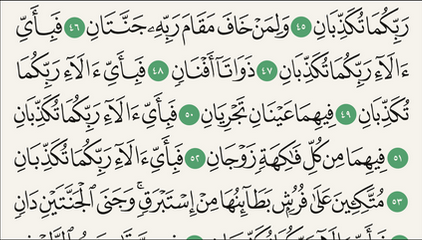 رَبِّكُمَا تُكَذِّبَانِ ٤٥ وَلِمَنْ خَافَ مَقَامَ رَبِّهِۦ جَنَّتَانِ ٤٦ فَبِأَيِّ
ءَالَآءِ رَبِّكُمَا تُكَذِّبَانِ ٤٧ ذَوَاتَآ أَفْنَانٍ ٤٨ فَبِأَيِّ ءَالَآءِ رَبِّكُمَا
تُكَذِّبَانِ ٤٩ فِيهِمَا عَيْنَانِ تَجْرِيَانِ ٥٠ فَبِأَيِّ ءَالَآءِ رَبِّكُمَا تُكَذِّبَانِ
٥١ فِيهِمَا مِن كُلِّ فَٰكِهَةٍ زَوْجَانِ ٥٢ فَبِأَيِّ ءَالَآءِ رَبِّكُمَا تُكَذِّبَانِ
٥٣ مُتَّكِـِٔينَ عَلَىٰ فُرُشٍۭ بَطَآئِنُهَا مِنْ إِسْتَبْرَقٍۚ وَجَنَى ٱلْجَنَّتَيْنِ دَانٍ